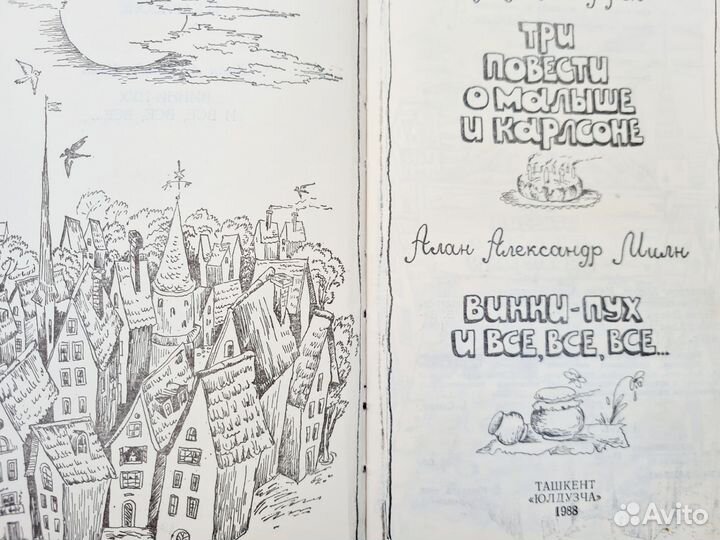 ТРИ
ПОВЕСТИ
О МАЛЫШЕ
И КАРЛСОНЕ
Алан Александр Милн
ВИННИ-ПУХ
И ВСЕ, ВСЕ, ВСЕ...
ТАШКЕНТ
«ЮЛДУЗЧА»
1988
Avito